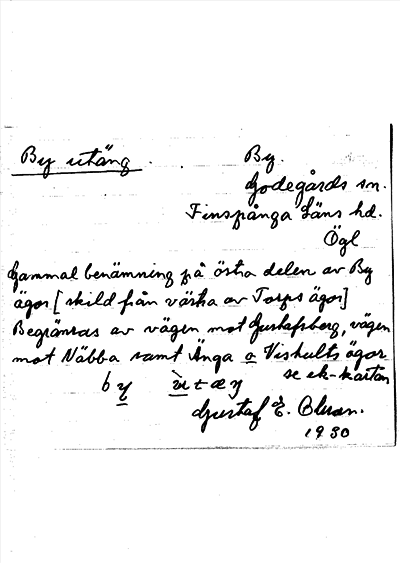 By utäng. By.
Godegårds sn.
Finspånga Läns hd.
Ögl
Gammal benämning på östra delen av By
ägor [skild från västra av Torps ägor]
Begränsas av vägen mot Gustafsborg, vägen
mot Näbba samt Änga o Vishults ägor
se ek-kartan
by ùtæŋ
Gustaf E.
1930